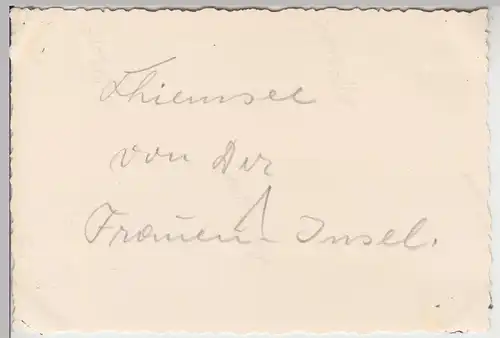 Chiemsee
von Der
Frauen-Insel.